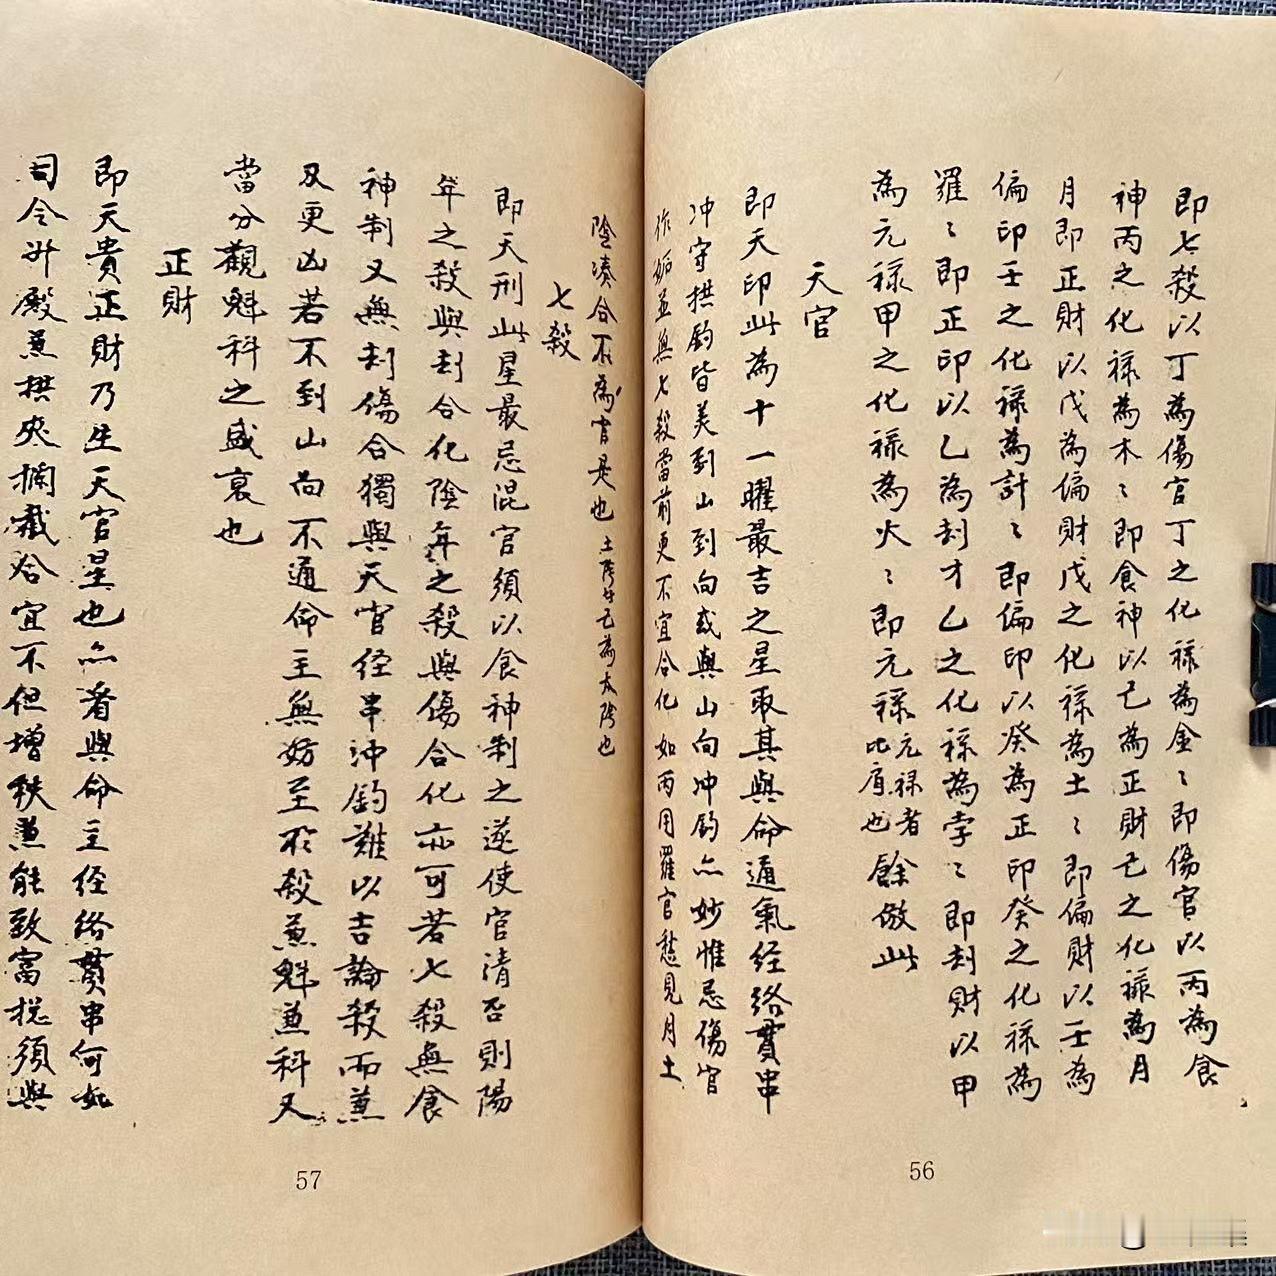 即七殺以丁為傷官丁之化祿為金〻即傷官以丙為食
神丙之化祿為木〻即食神以己為正財己之化祿為月
月即正財以戊為偏財戊之化祿為土〻即偏財以壬為
偏印壬之化祿為計〻即偏印以癸為正印癸之化祿為
羅〻即正印以乙為刦才乙之化祿為孛〻即刦財以甲
為元祿甲之化祿為火〻即元祿元祿者比肩也餘倣此
天官
即天印此為十一曜最吉之星取其與命通氣經絡貫串
冲守拱鈞皆美到山到向或與山向冲鈞亦妙惟忌傷官
作姤並無七殺當前更不宜合化如丙用羅官愁見月土
56
陰湊合不為官是也土陰己為太陰也
七殺
即天刑此星最忌混官須以食神制之遂使官清否則陽
年之殺與刦合化陰年之殺與傷合化亦可若七殺無食
神制又無刦傷合獨與天官経串沖鈞難以吉論殺而兼
刃更凶若不到山尚不通命主無妨至於殺兼魁兼科又
當分觀魁科之盛衰也
正財
即天貴正財乃生天官星也亦看與命主経絡貫串何如
司令升殿兼拱夾擱截合宜不但增秩兼能致富捴須與
57